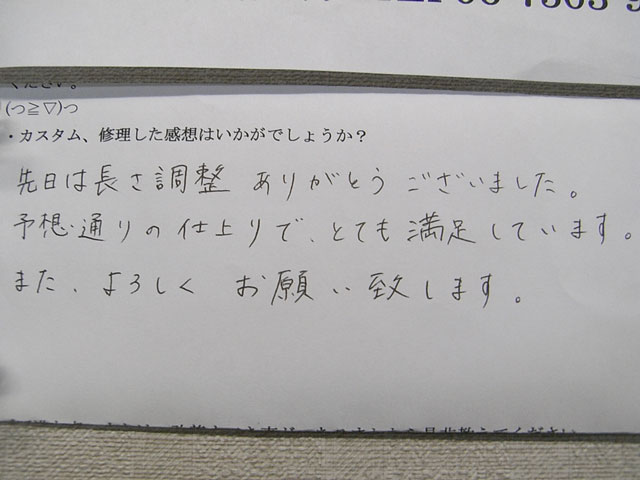 ください。
(っ≧▽)っ
・カスタム、修理した感想はいかがでしょうか？
先日は長さ調整 ありがとう ございました。
予想通りの仕上りで、とても満足しています。
また、よろしく お願い致します。